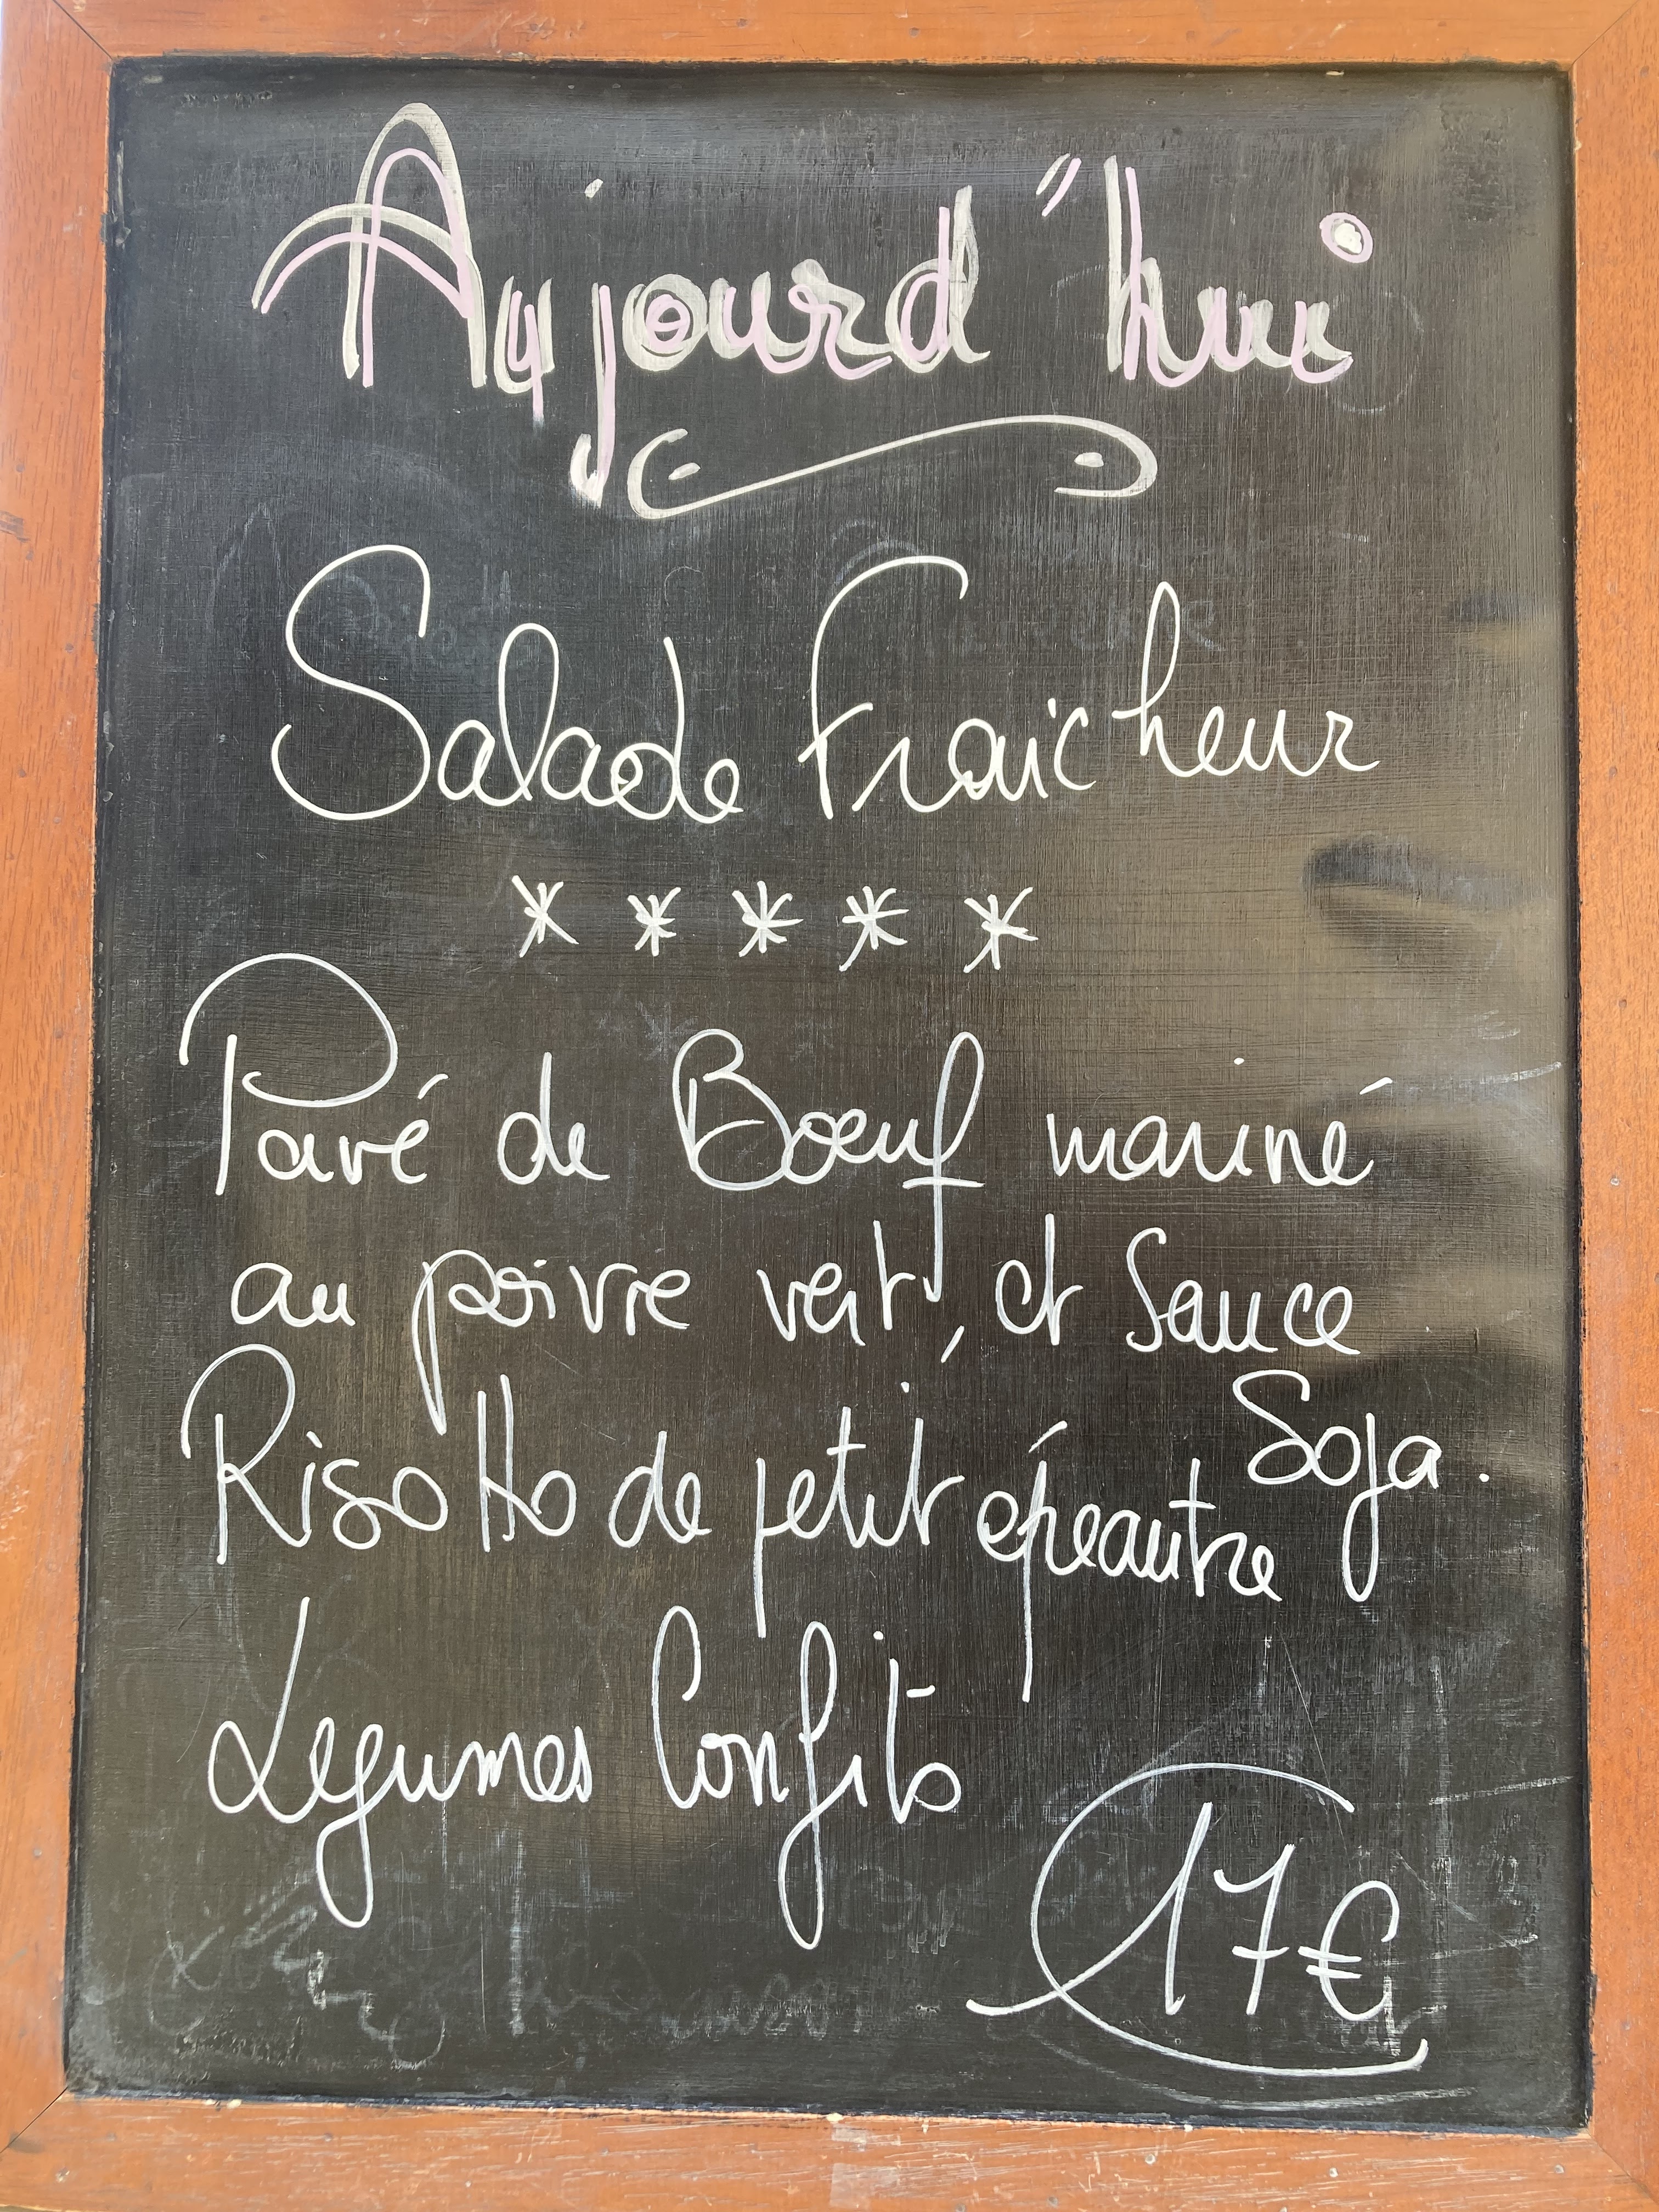 Aujourd'hui
Salade Fraicheur
* * * * *
Pavé de Bœuf mariné
au poivre vert, et Sauce
Soja.
Risotto de petit épeautre
Legumes Confits
17€